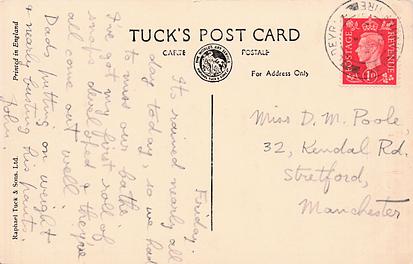 TUCK'S POST CARD
CARTE POSTALE
For Address Only
Printed in England
Raphael Tuck & Sons, Ltd.
POSTAGE
REVENUE
1D
Friday.
Its rained nearly all
day today, so we had
to miss our bathe.
I've got my first roll of
snaps developed & they've
all come out well.
Dads putting on weight
& nearly busting his pants.
John.
Miss D. M. Poole
32, Kendal Rd.
Stretford,
Manchester